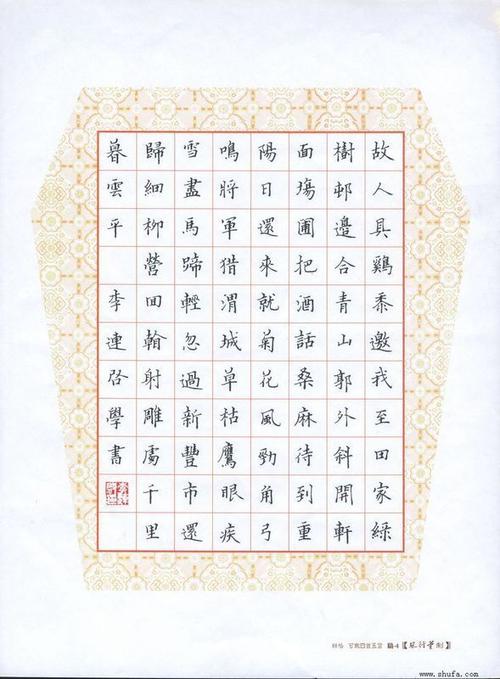 故人具鷄黍邀我至田家綠
樹邨邊合青山郭外斜開軒
面塲圃把酒話桑麻待到重
陽日還來就菊花風勁角弓
鳴將軍猎渭城草枯鷹眼疾
雪盡馬蹄輕忽過新豐市還
歸細柳營回翰射雕處千里
暮雲平 李連啓學書
www.shufa.com